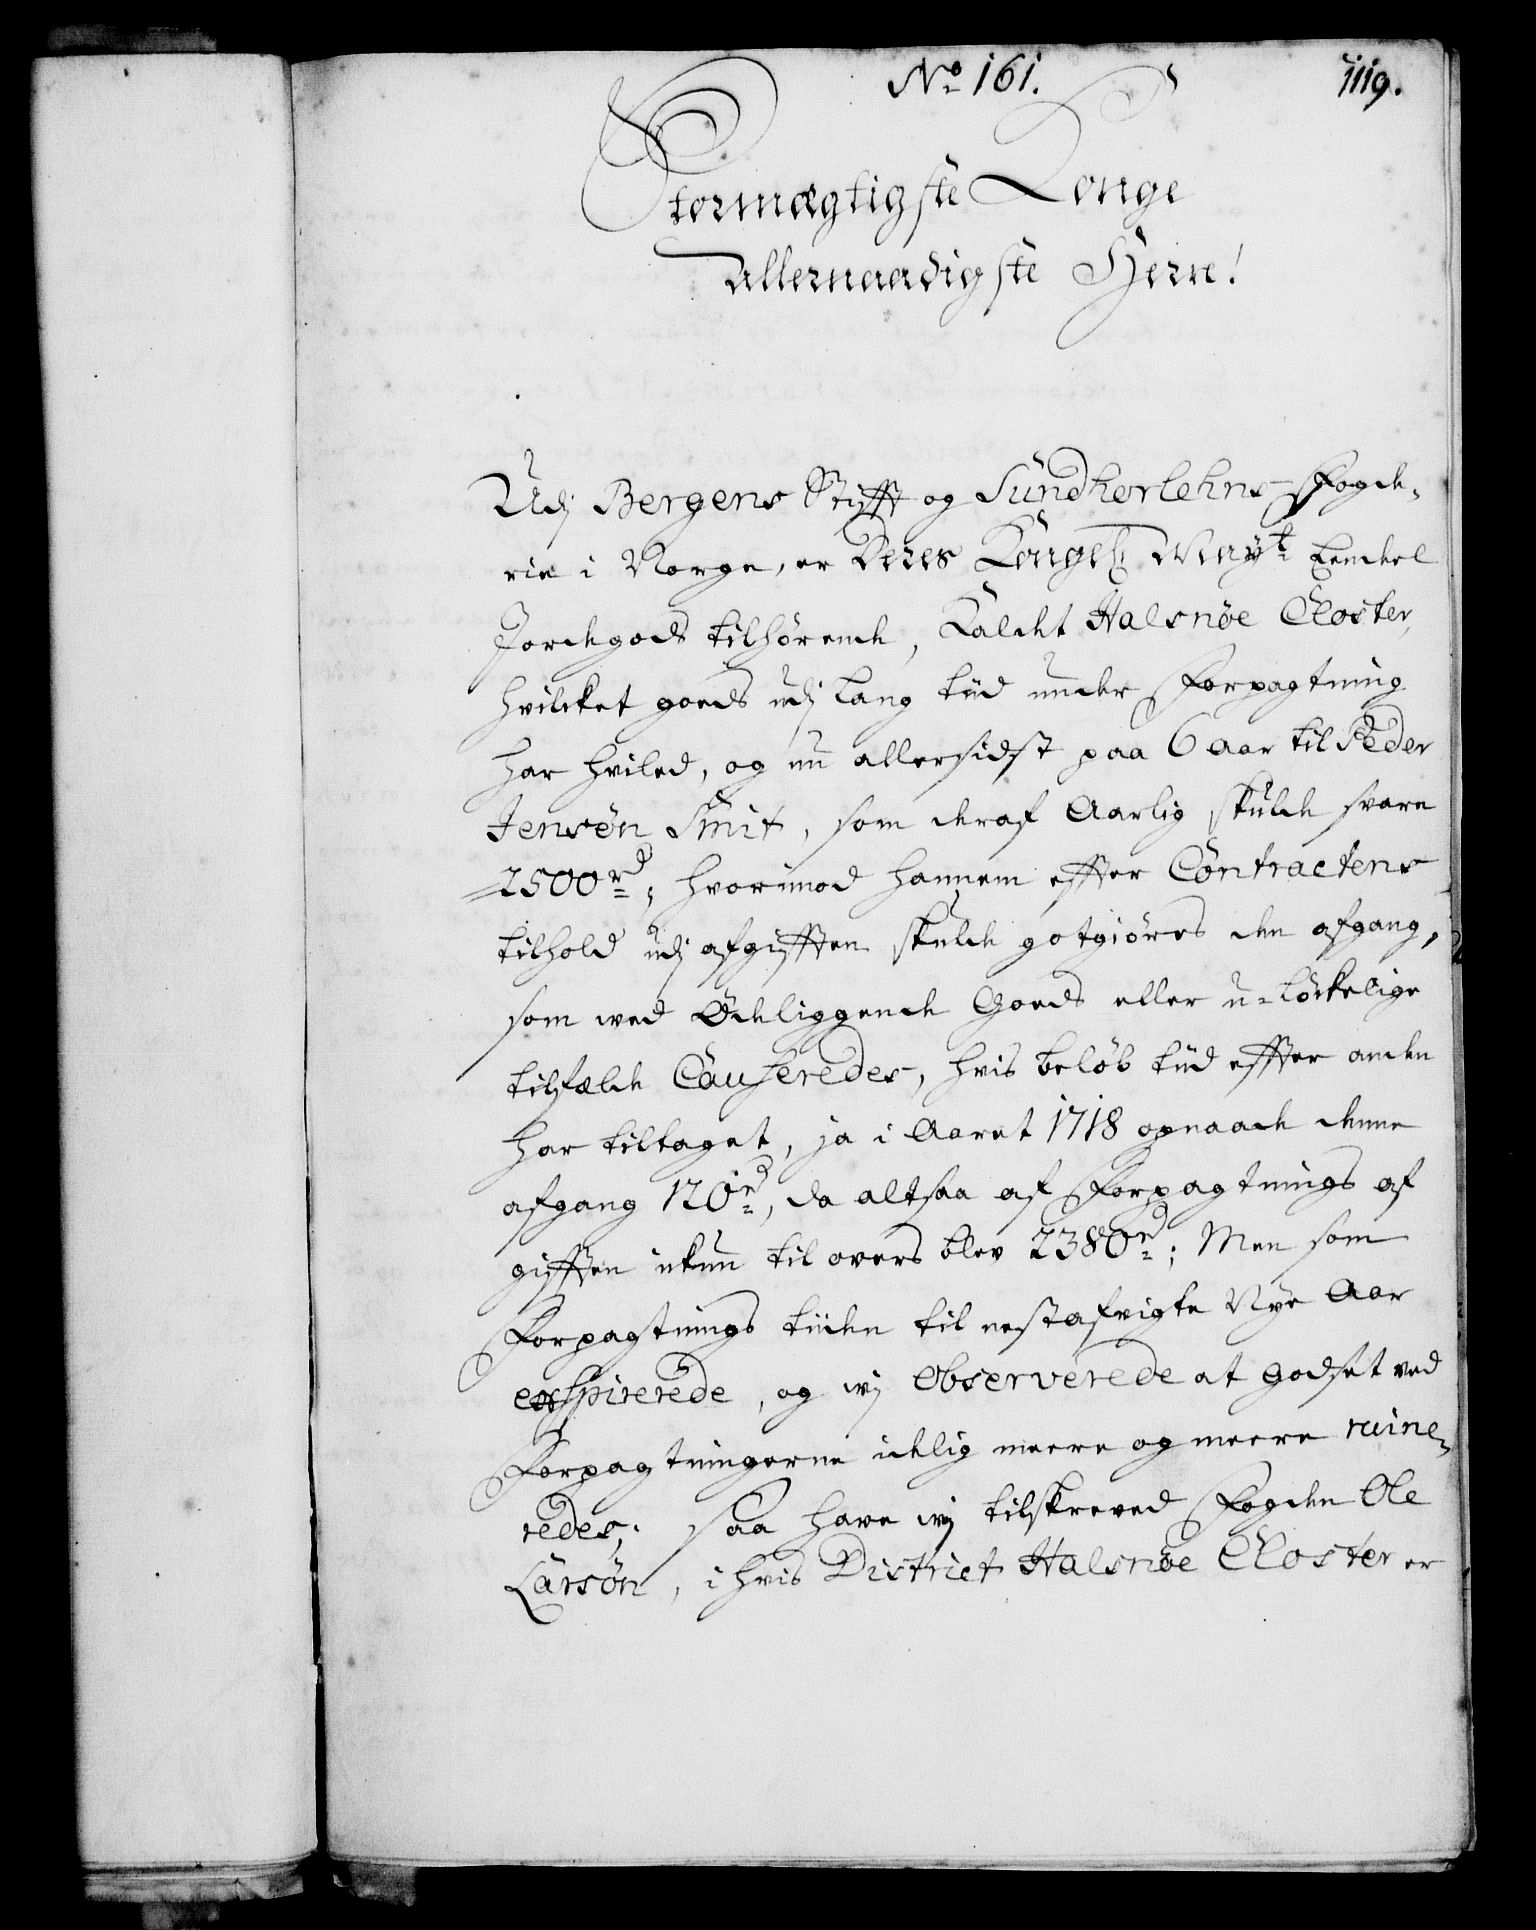 No 161.
1119.
Stormægtigste Konge
Allernaadigste Herre!
Udj Bergens Stifft og Sündhorlehns Fogde,
rie i Norge, er Deres Kongel: Mayt: Eendeel
Jordegods tilhørende, Kaldet Halsnöe Closter,
hvilcket goeds udj lang tiid under Forpagtning
har hviled, og nu allersidst paa 6 Aar til Peder
Jensøn Smit, som deraf Aarlig skulde svare
2500 rd; hvorimod hannem effter Contractens
tilhold udj afgifften skulde gotgiøres den afgang,
som ved Ødeliggende Goeds eller u-løckelige
tilfælde Causeredes, hvis beløb tiid effter anden
har tiltaget, ja i Aaret 1718 opnaade denne
afgang 120 rd, da altsaa af Forpagtnings af
gifften ickun til overs blev 2380 rd; Men som
Forpagtnings tiiden til nestafvigte Nye Aar
exspirerede, og wj Observerede at godset ved
Forpagtningerne idelig meere og meere ruine,
redes; saa have wj tilskreved Fogden Ole
Larsön, i hvis District Halsnöe Closter er